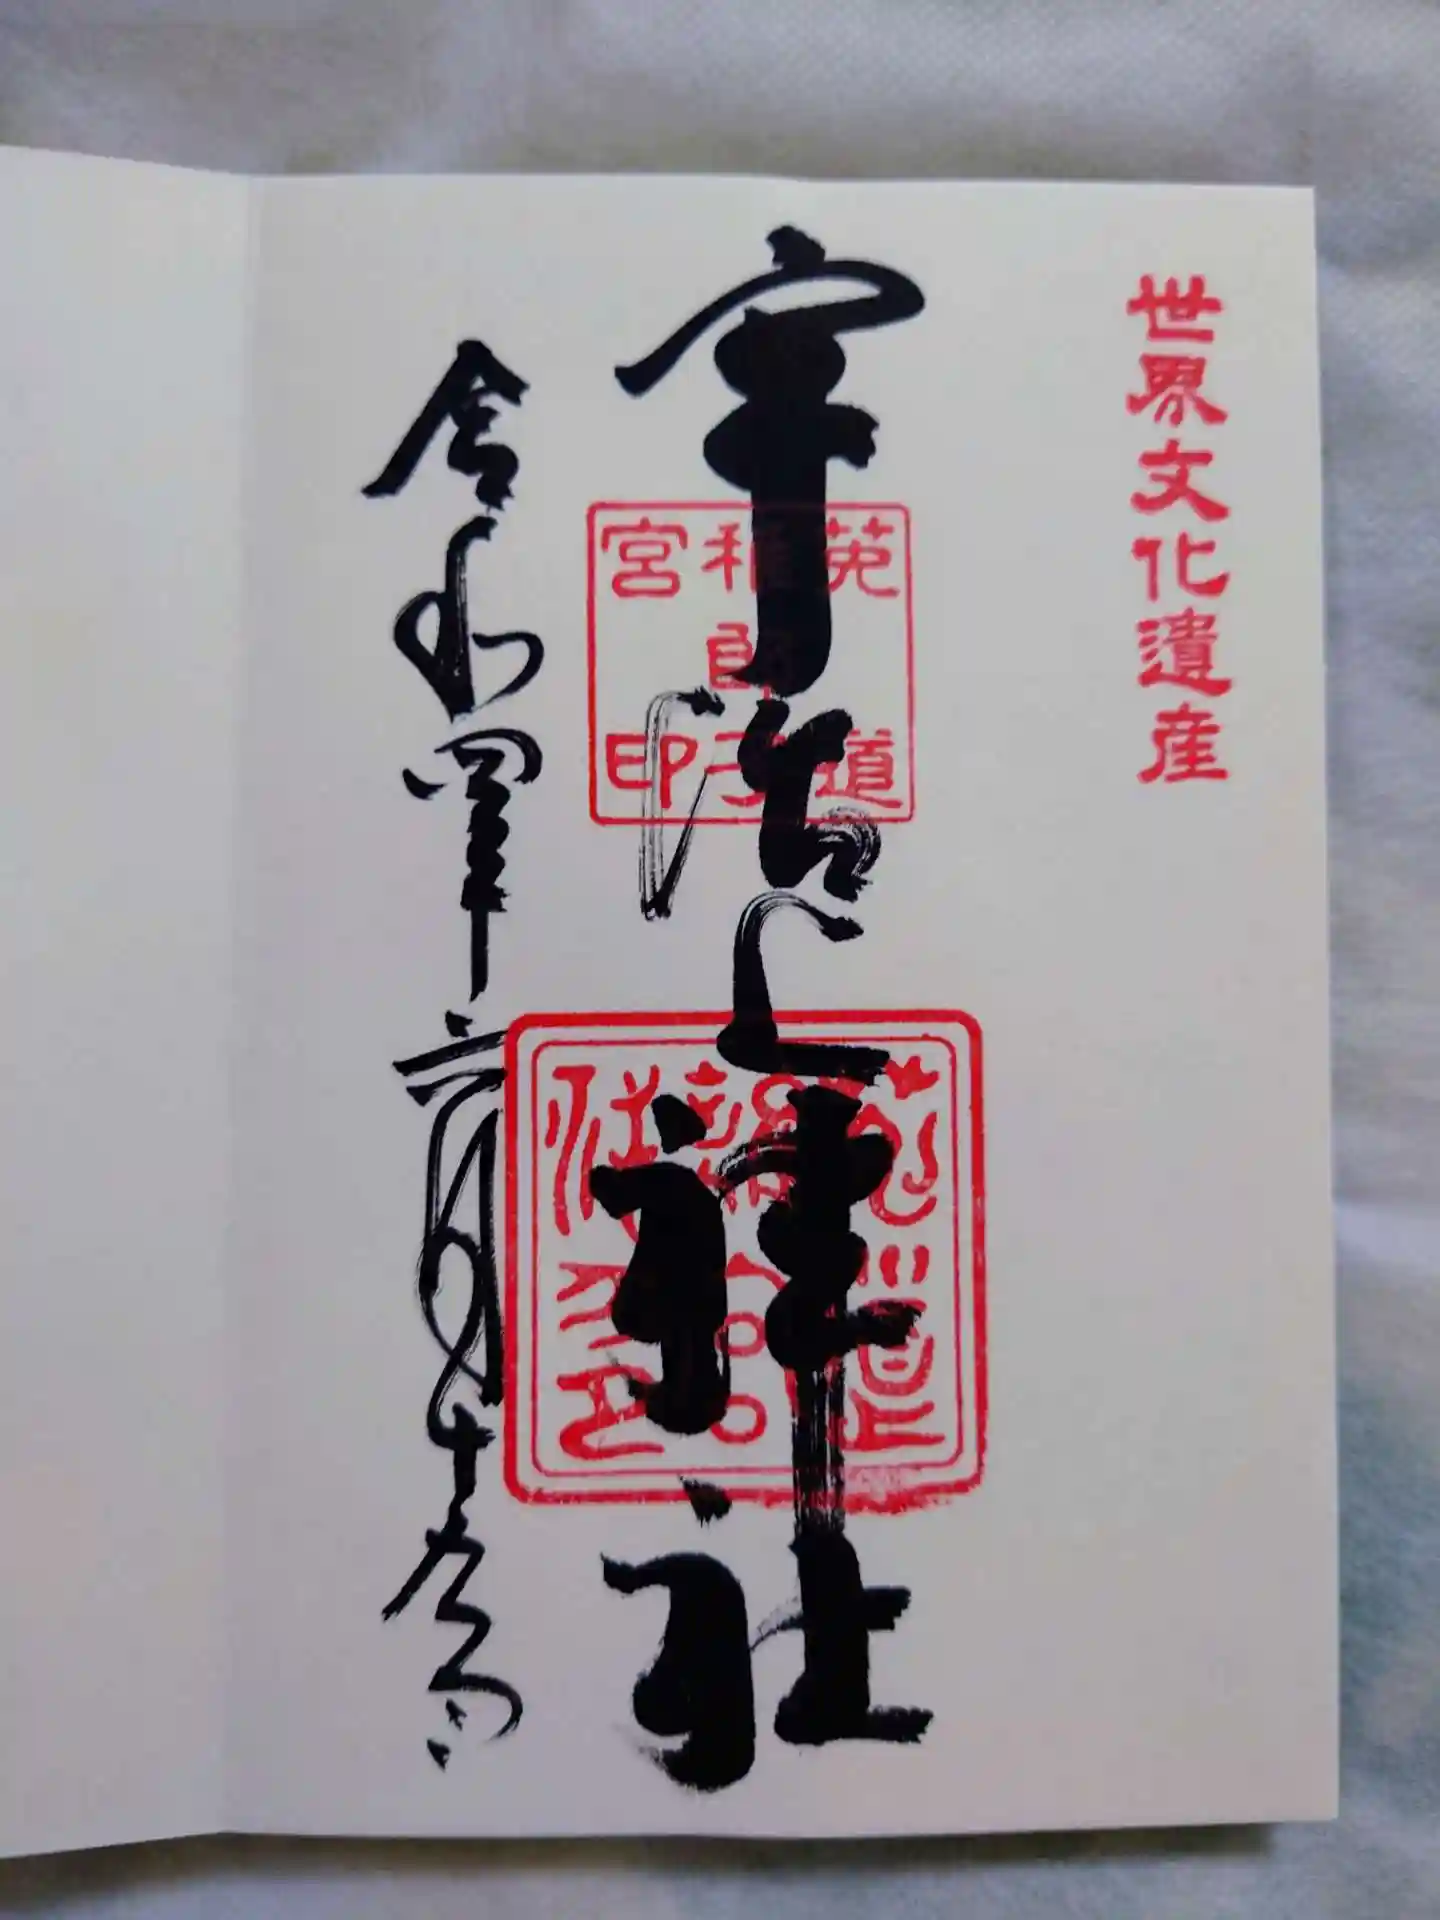 世界文化遺産
宇治上神社
莵道
稚郎子
宮印
令和四年六月十九日